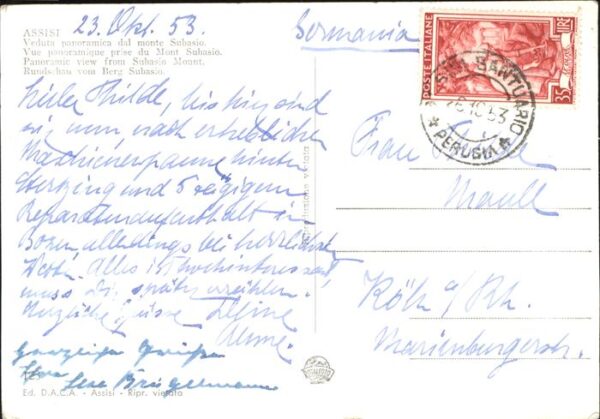 23. Okt. 53.
Germania
ASSISI
Veduta panoramica dal monte Subasio.
Vue panoramique prise du Mont Subasio.
Panoramic view from Subasio Mount.
Rundschau vom Berg Subasio.
POSTE ITALIANE
LIRE
35
SANTUARIO
PERUGIA
Liebe Thilde, bis hier sind
wir nun nach erheblicher
Maschinenpanne hinter
Sterzing und 5 tägigem
Reparaturaufenthalt in
Bozen allerdings bei herrlichem
Wetter. Alles ist hochinteressant,
muss Dir später erzählen.
Herzliche Grüsse Deine
Frau
Köln a/Rh.
Marienburgerstr.
Herzliche Grüße
Ed. D.A.C.A. - Assisi - Ripr. vietato